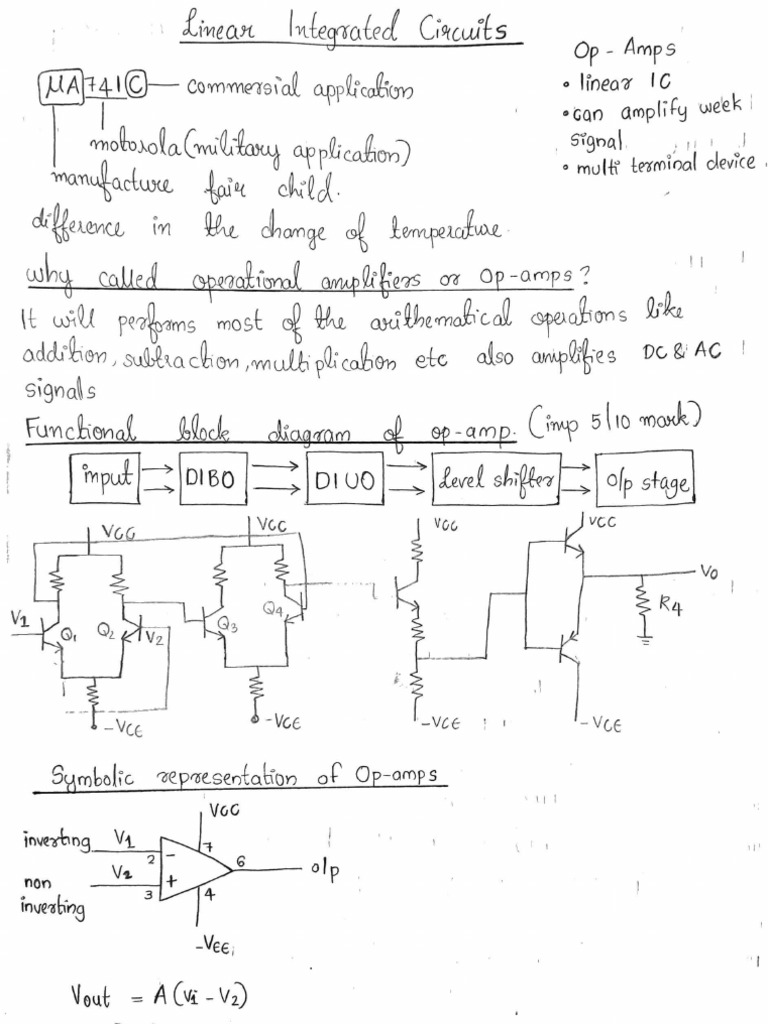 Linear Integrated Circuits
μA741C — commersial application
motorola (military application)
manufacture fair child.
difference in the change of temperature.
Op - Amps
• linear IC
• can amplify week
signal
• multi terminal device.
why called operational amplifiers or op-amps?
It will performs most of the arithematical operations like
addition, subtraction, multiplication etc also amplifies DC & AC
signals
Functional block diagram of op-amp. (imp 5/10 mark)
input DIBO DIUO Level shifter O/p stage
VCC VCC VCC VCC
V1 Q1 Q2 V2 Q3 Q4 VO
R4
-VCE -VCE -VCE -VCE
Symbolic representation of Op-amps
VCC
inverting V1 2 - 7
V2 6 o/p
non 3 + 4
inverting
-VEE
Vout = A (Vi - V2)